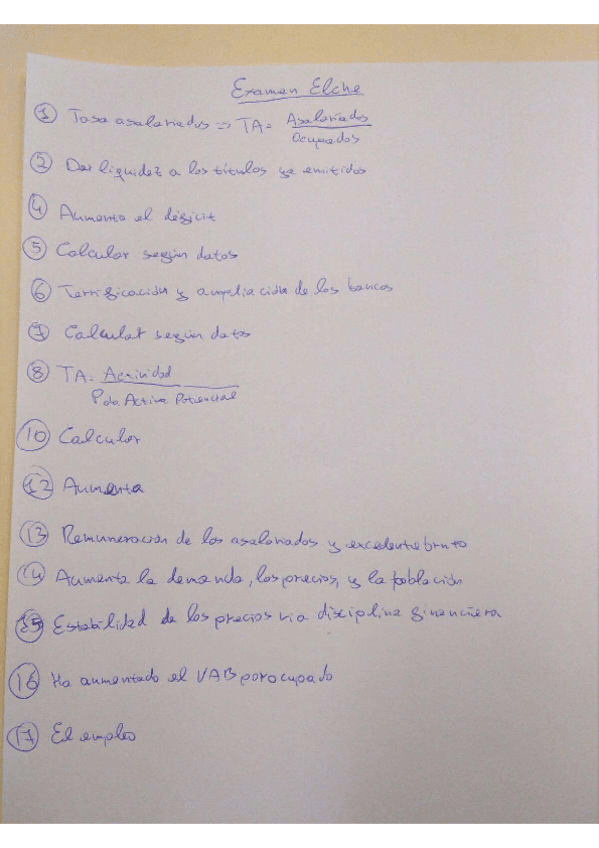 Examen Elche
① Tasa asalariados => TA = Asalariados
Ocupados
② Dar liquidez a los títulos ya emitidos
④ Aumenta el déficit
⑤ Calcular según datos
⑥ Terrificación y ampliación de los bancos
⑦ Calcular según datos
⑧ TA = Actividad
Pob. Activa Potencial
⑩ Calcular
⑫ Aumenta
⑬ Remuneración de los asalariados y excedente bruto
⑭ Aumenta la demanda, los precios, y la población
⑮ Estabilidad de los precios vía disciplina financiera
⑯ Ha aumentado el VAB por ocupado
⑰ El empleo